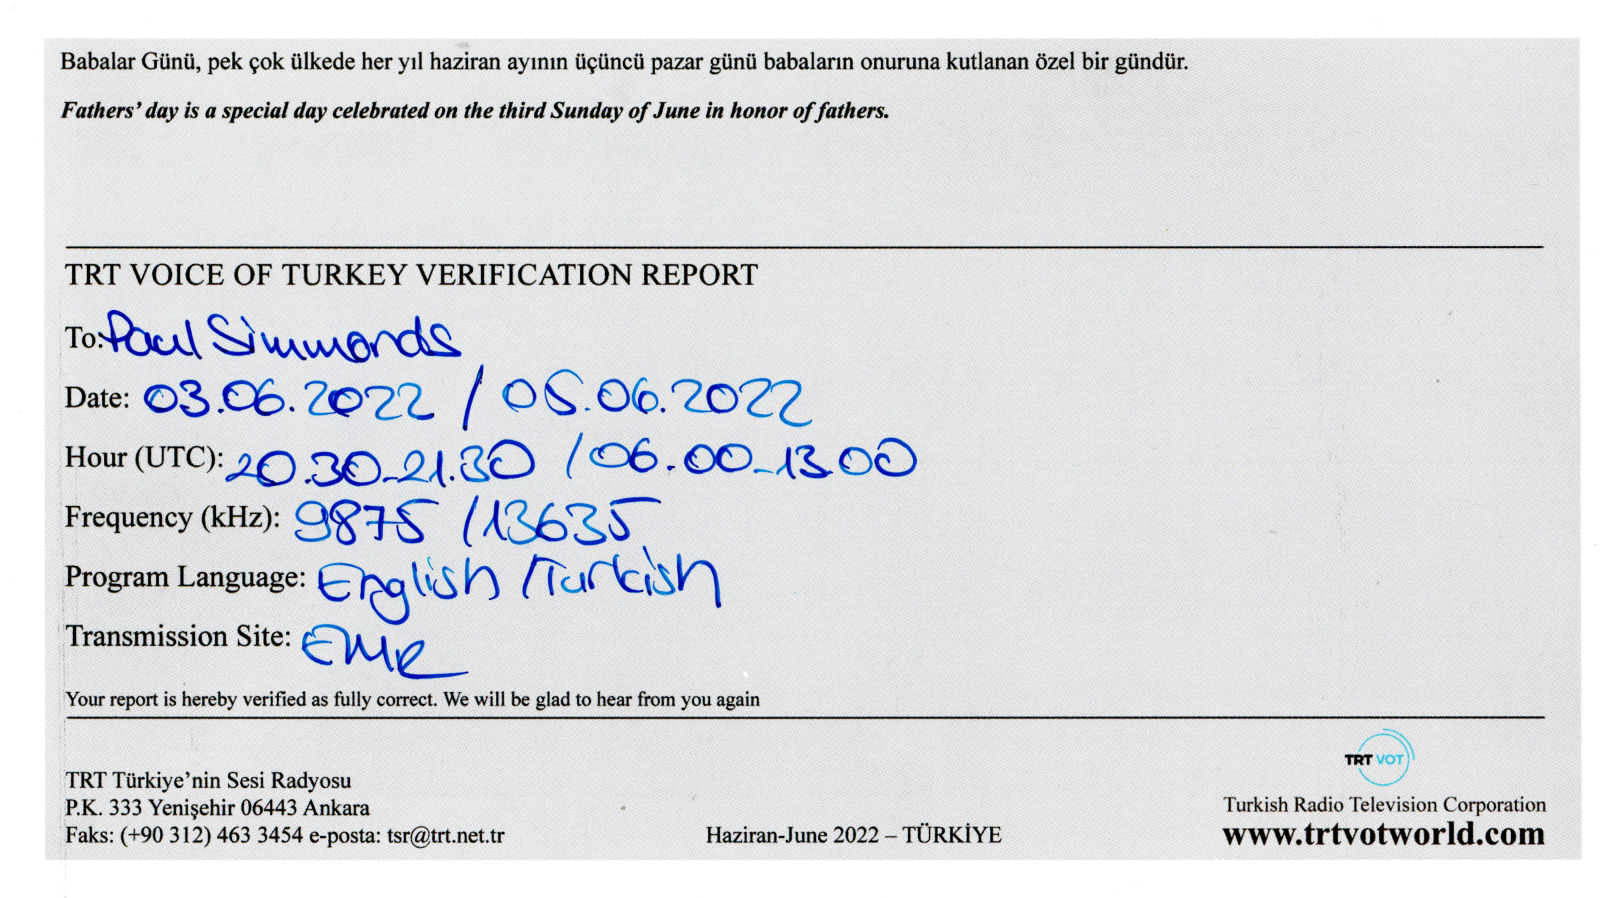 Babalar Günü, pek çok ülkede her yıl haziran ayının üçüncü pazar günü babaların onuruna kutlanan özel bir gündür.
Fathers' day is a special day celebrated on the third Sunday of June in honor of fathers.
TRT VOICE OF TURKEY VERIFICATION REPORT
To: Paul Simmonds
Date: 03.06.2022 / 05.06.2022
Hour (UTC): 20.30-21.30 / 06.00-13.00
Frequency (kHz): 9875 / 13635
Program Language: English / Turkish
Transmission Site: EMR
Your report is hereby verified as fully correct. We will be glad to hear from you again
TRT Türkiye'nin Sesi Radyosu
P.K. 333 Yenişehir 06443 Ankara
Faks: (+90 312) 463 3454 e-posta: tsr@trt.net.tr
Haziran-June 2022 – TÜRKİYE
TRT VOT
Turkish Radio Television Corporation
www.trtvotworld.com